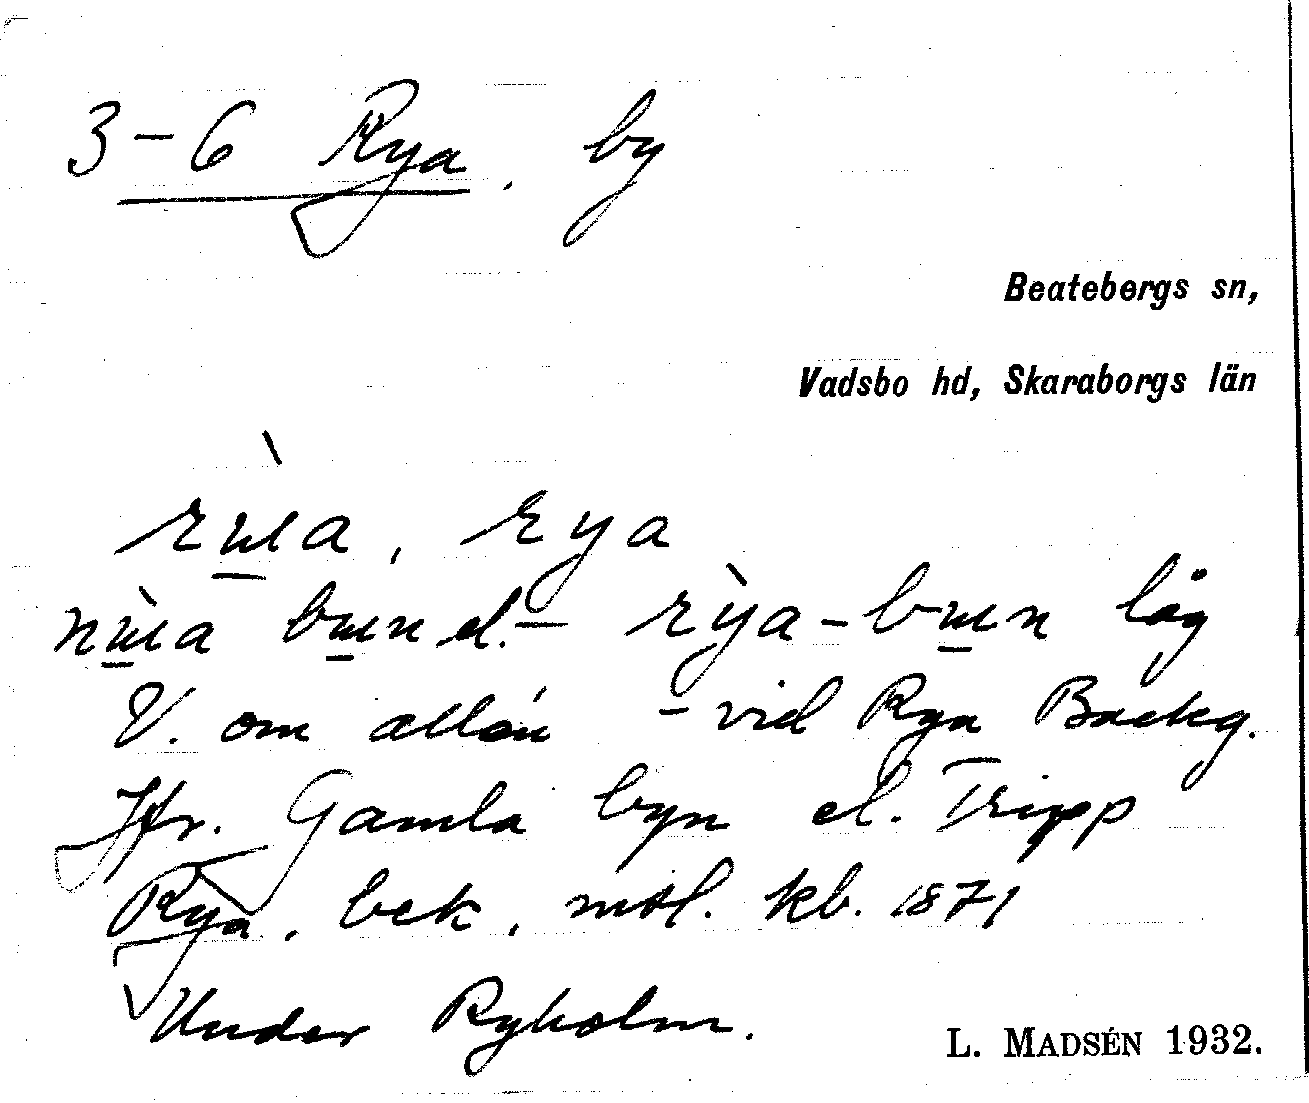 3-6 Rya, by
Beatebergs sn,
Vadsbo hd, Skaraborgs län
rya
låg
V. om allén - vid Rya Backg.
Jfr. Gamla byn el. Tripp
Rya, bek, mtl. kb. 1871
Under Ryholm.
L. MADSÉN 1932.